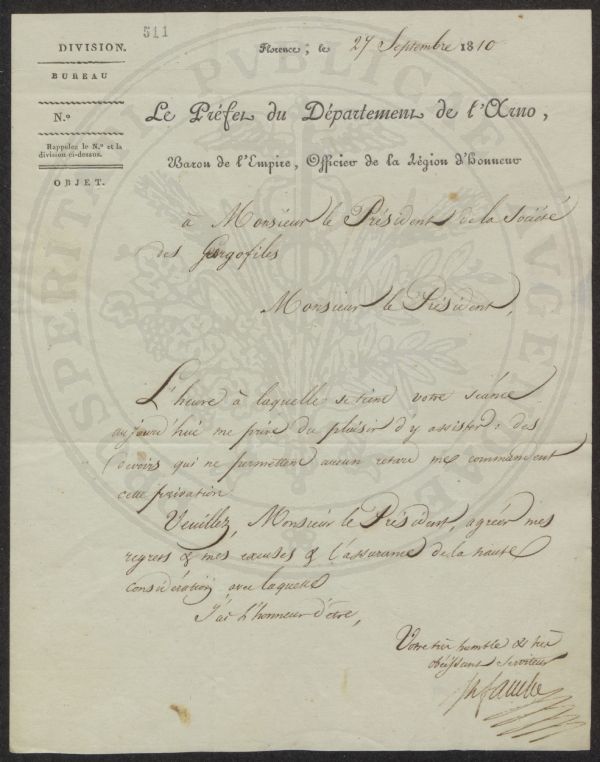 511
DIVISION.
BUREAU
N.º
Rappelez le N.º et la
division ci-dessus.
OBJET.
Florence, le 27 Septembre 1810
Le Préfet du Département de l'Arno,
Baron de l'Empire, Officier de la Légion d'Honneur
à Monsieur le Président de la Société
des Gergofiles
Monsieur le Président,
L'heure à laquelle se tient votre séance
aujourd'hui me prive du plaisir d'y assister : des
devoirs qui ne permettent aucun retard me commandent
cette privation
Veuillez, Monsieur le Président, agréer mes
regrets & mes excuses & l'assurance de la haute
considération avec laquelle
J'ai l'honneur d'être,
Votre très humble & très
obéissant Serviteur
PROSPERITATI PUBLICAE AUGENDAE